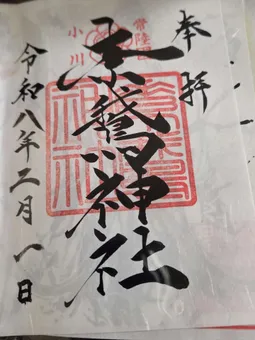 奉拝
常陸国
小川
素鵞神社
令和八年二月一日